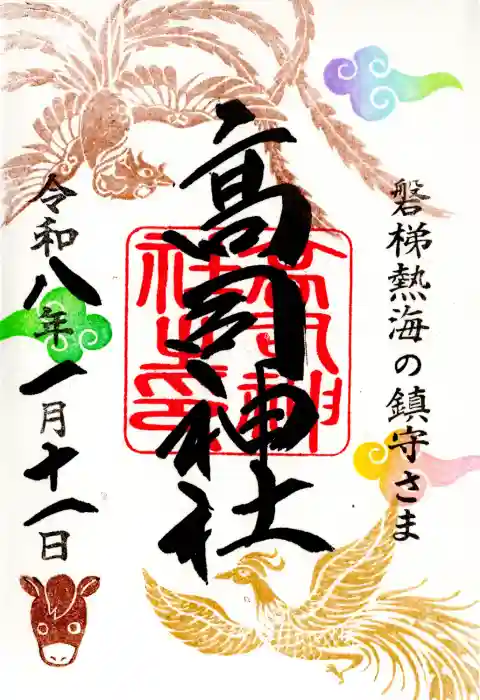 磐梯熱海の鎮守さま
高司神社
令和八年一月十一日